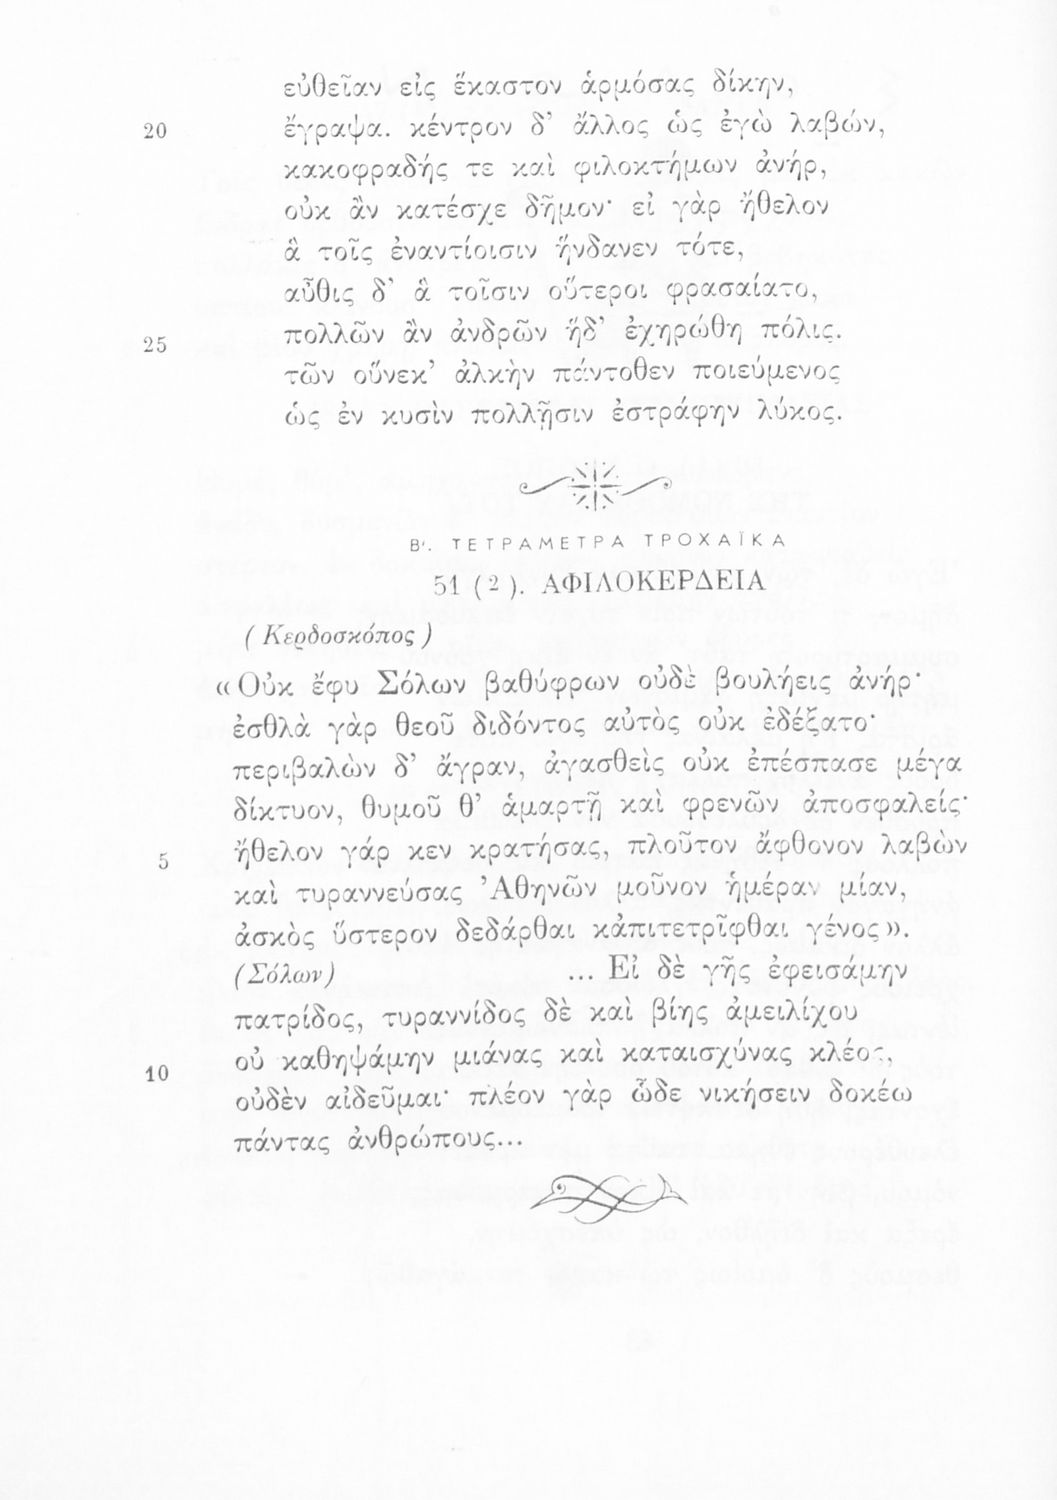 εὐθεῖαν εἰς ἕκαστον ἁρμόσας δίκην,
20 ἔγραψα. κέντρον δ’ ἄλλος ὡς ἐγὼ λαβών,
κακοφραδής τε καὶ φιλοκτήμων ἀνήρ,
οὐκ ἂν κατέσχε δῆμον· εἰ γὰρ ἤθελον
ἃ τοῖς ἐναντίοισιν ἥνδανεν τότε,
αὖθις δ’ ἃ τοῖσιν οὕτεροι φρασαίατο,
25 πολλῶν ἂν ἀνδρῶν ἥδ’ ἐχηρώθη πόλις.
τῶν οὕνεκ’ ἀλκὴν πάντοθεν ποιεύμενος
ὡς ἐν κυσὶν πολλῇσιν ἐστράφην λύκος.
Β'. ΤΕΤΡΑΜΕΤΡΑ ΤΡΟΧΑΪΚΑ
51 (2). ΑΦΙΛΟΚΕΡΔΕΙΑ
(Κερδοσκόπος)
«Οὐκ ἔφυ Σόλων βαθύφρων οὐδὲ βουλήεις ἀνήρ·
ἐσθλὰ γὰρ θεοῦ διδόντος αὐτὸς οὐκ ἐδέξατο·
περιβαλὼν δ’ ἄγραν, ἀγασθεὶς οὐκ ἐπέσπασε μέγα
δίκτυον, θυμοῦ θ’ ἁμαρτῇ καὶ φρενῶν ἀποσφαλείς·
5 ἤθελον γάρ κεν κρατήσας, πλοῦτον ἄφθονον λαβὼν
καὶ τυραννεύσας Ἀθηνῶν μοῦνον ἡμέραν μίαν,
ἀσκὸς ὕστερον δεδάρθαι κἀπιτετρῖφθαι γένος».
(Σόλων) ... Εἰ δὲ γῆς ἐφεισάμην
πατρίδος, τυραννίδος δὲ καὶ βίης ἀμειλίχου
οὐ καθηψάμην μιάνας καὶ καταισχύνας κλέος,
10 οὐδὲν αἰδεῦμαι· πλέον γὰρ ὧδε νικήσειν δοκέω
πάντας ἀνθρώπους...